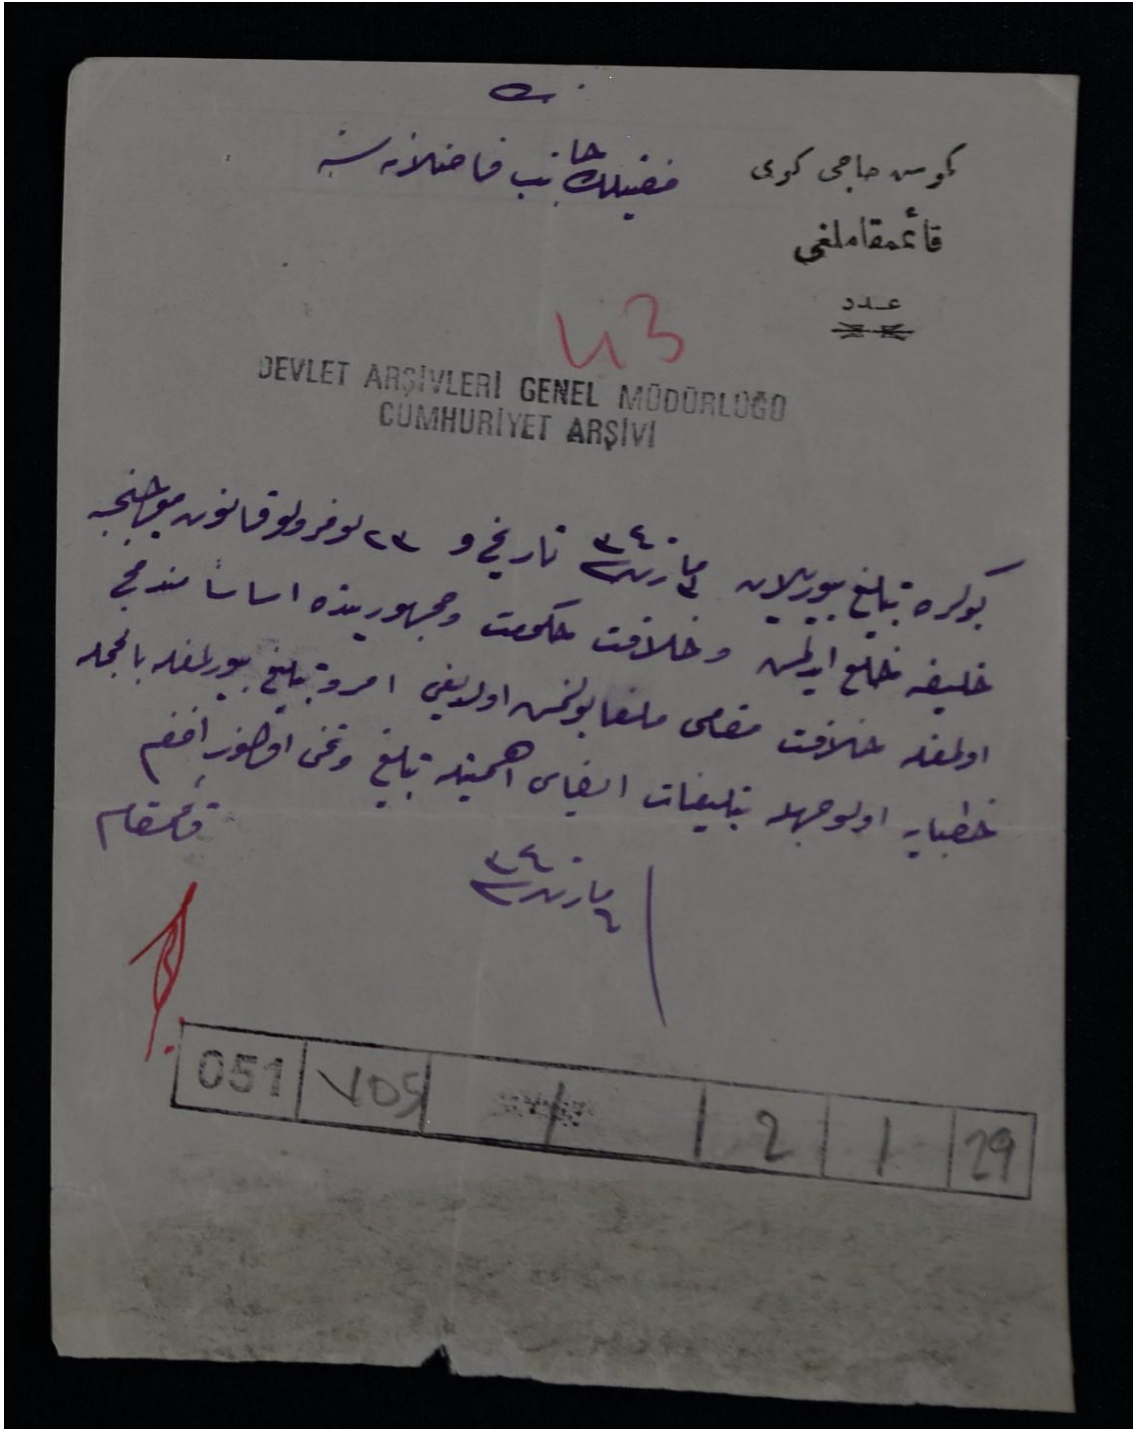 كوسه حاجی كوی
قائمقاملغی
عدد
فضیلتلو جانب فاضلانه سنه
43
DEVLET ARŞİVLERİ GENEL MÜDÜRLÜĞÜ
CUMHURİYET ARŞİVİ
بوكره تبلیغ بیوریلان مارت ٣٤٠ تاریخ و نومرولو قانون موجبنجه
خلیفه خلع ایدلمش و خلافت حكومت و جمهوریتده اساساً مندمج
اولمغله خلافت مقامی ملغا بولنمش اولدیغی امر و تبلیغ بیورلمغله بالجمله
خطبایه اولوجهله تبلیغات ایفاسی اهمیتله تبلیغ و تمنی اولنور افندم
قائمقام
مارت ٣٤٠
051 V05 2 1 29